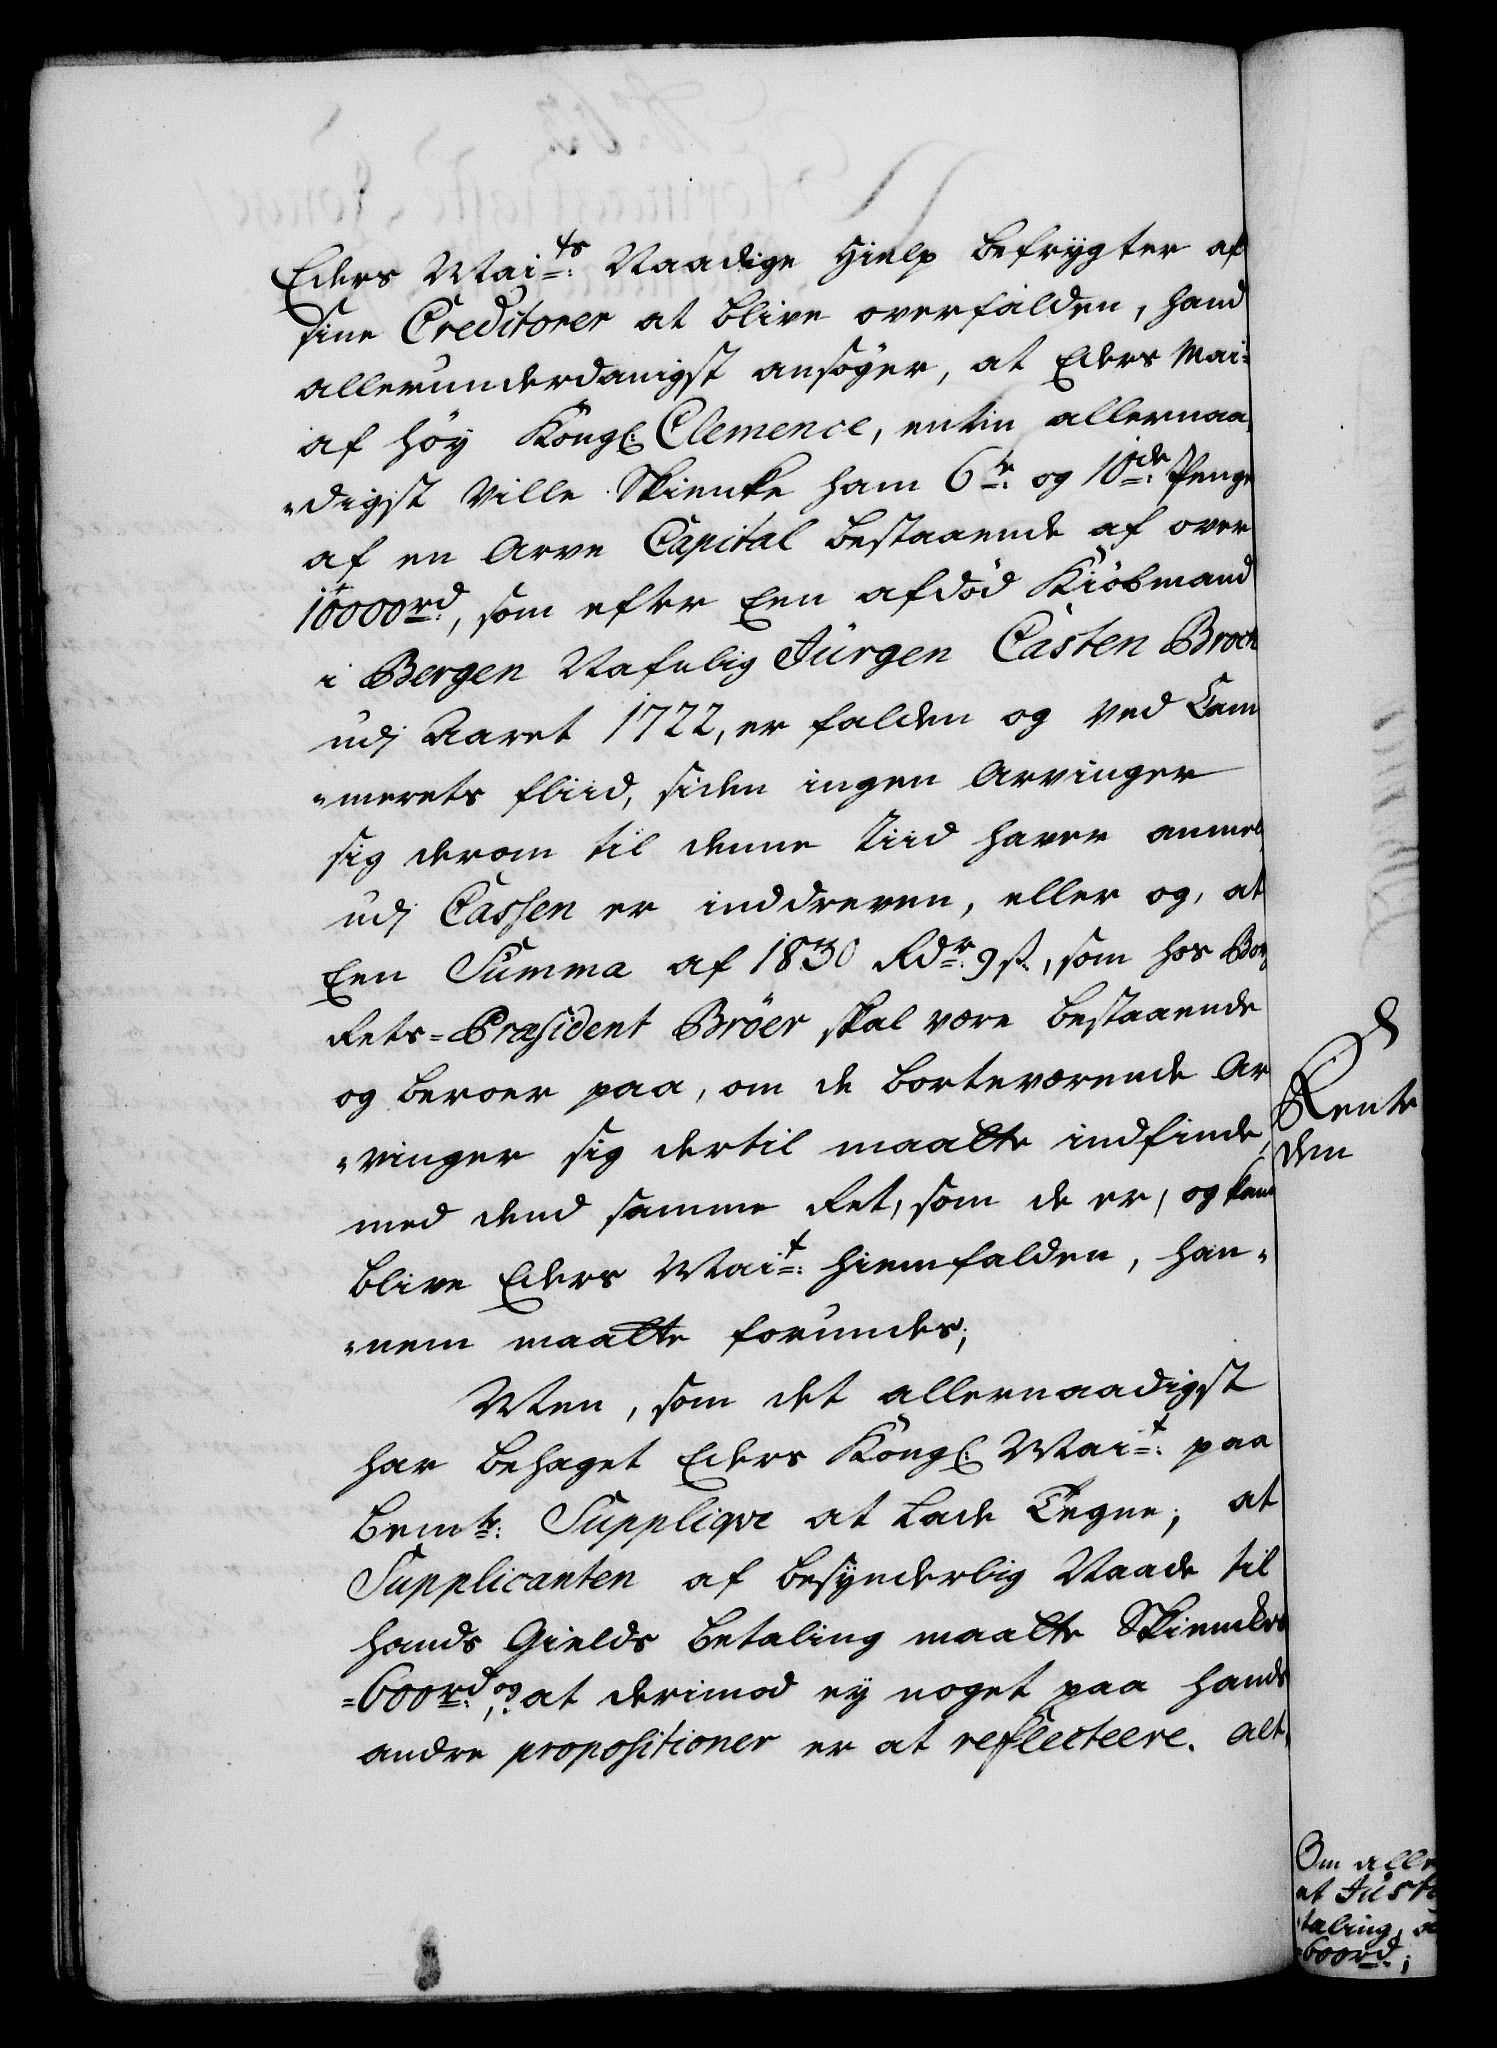 Eders Mai:ts Naadige Hielp befrygter af
sine Creditorer at blive overfalden, hand
allerunderdanigst ansöger, at Eders Mai:
af höy Kongl: Clemence, enten allernaa,
"digst ville Skienke ham 6te: og 10de: Penge
af en Arve Capital bestaaende af over
10000rd:, som efter Een afdöd Kiöbmand
i Bergen Nafnlig Jürgen Casten Broch
udj Aaret 1722, er falden og ved Cam
"merets fliid, siden ingen Arvinger
sig derom til denne Tiid haver anmel,
udj Cassen er inddreven, eller og, at
Een Summa af 1830 Rdr: 9 s:, som hos Borg
Rets=Præsident Bröer skal være bestaaende
og beroer paa, om de borteværende Ar
"vinger sig dertil maatte indfinde,
med dend samme Ret, som de er, og kand
blive Eders Mai:t hiemfalden, han"
"nem maatte forundes;
Men, som det allernaadigst
har behaget Eders Kongl: Mai:t paa
bemte: Supplique at lade Tegne; at
Supplicanten af besynderlig Naade til
hands Gields betaling maatte Skienckes
=600rd:, og at derimod ey noget paa hands
andre propositioner er at reflecteere. alt,
Rente
den
Om alle
at Just
taling,
600rd:;